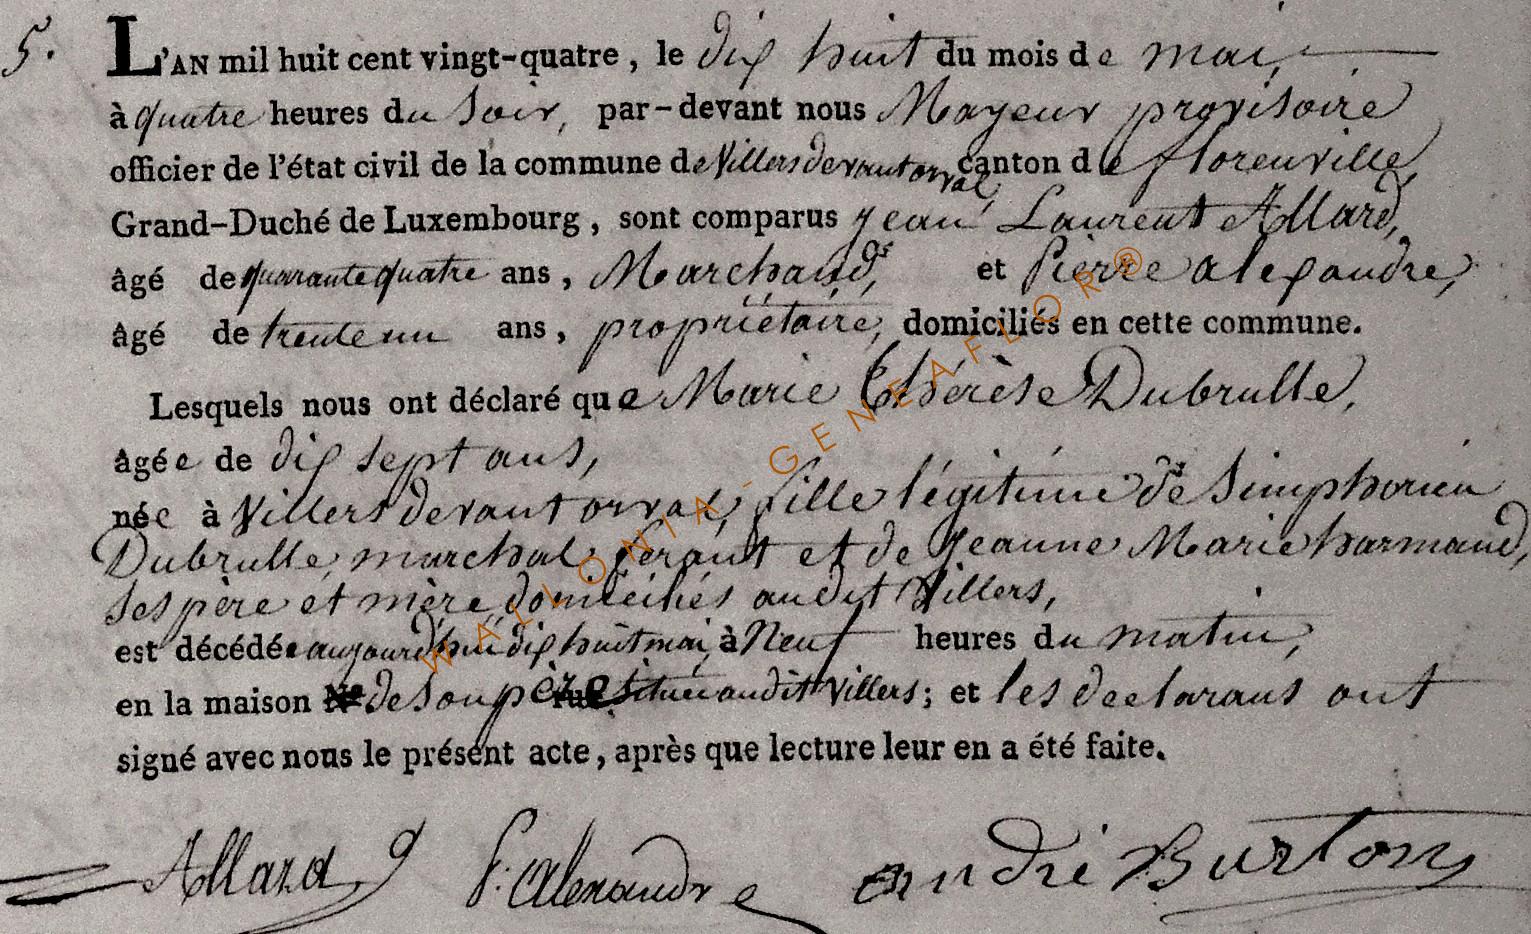 5.
L'AN mil huit cent vingt-quatre, le dix huit du mois de mai,
à quatre heures du soir, par-devant nous Mayeur provisoire
officier de l'état civil de la commune de Villers devant orval, canton de florenville,
Grand-Duché de Luxembourg, sont comparus jean Laurent Allard,
âgé de quarante quatre ans, Marchand, et Pierre alexandre,
âgé de trente un ans, propriétaire, domiciliés en cette commune.
Lesquels nous ont déclaré que Marie Thérèse Dubrulle,
âgée de dix sept ans,
née à Villers devant orval, fille légitime de Simphorien
Dubrulle, marchal ferant et de Jeanne Marie harmand,
ses père et mère domiciliés audit Villers,
est décédée aujourd'hui dix huit mai, à Neuf heures du matin,
en la maison de son père située audit Villers; et les declarans ont
signé avec nous le présent acte, après que lecture leur en a été faite.
Allard P. Alexandre andré Burton
WALLONIA-GENEAFLOR®